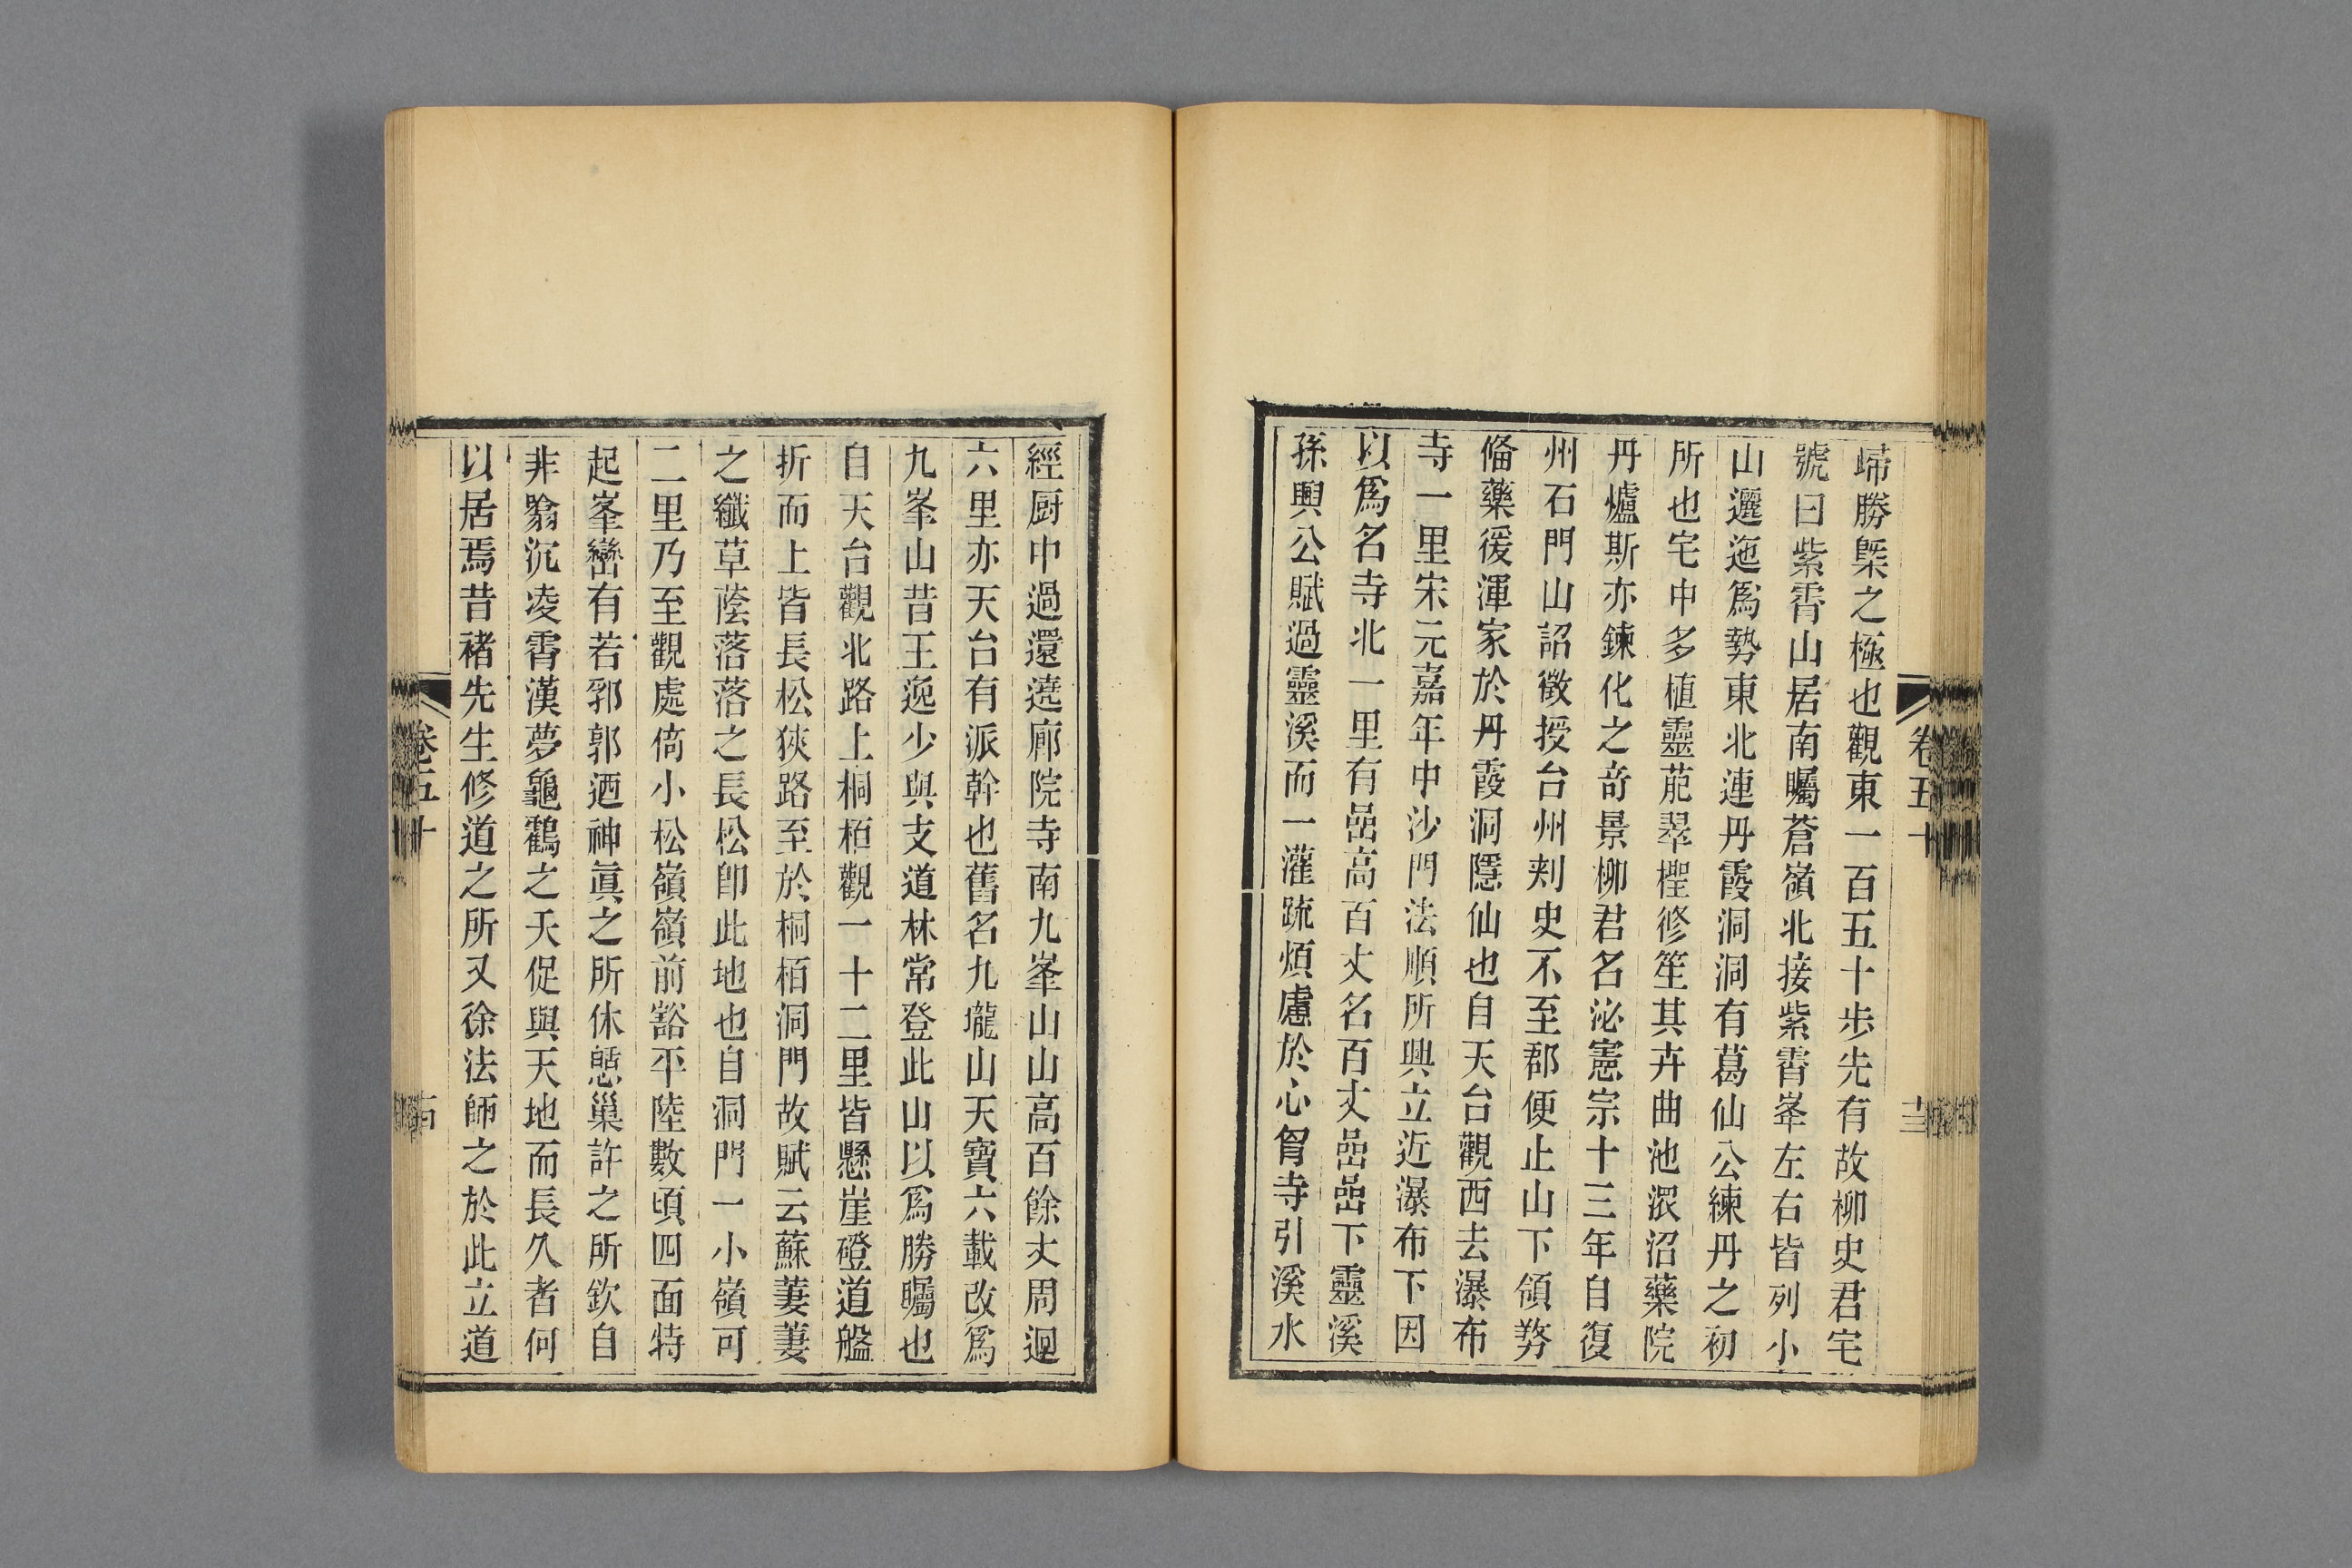 崹勝槩之極也觀東一百五十步先有故柳史君宅
號曰紫霄山居南矚蒼嶺北接紫霄峯左右皆列小
山邐迤爲勢東北連丹霞洞洞有葛仙公練丹之初
所也宅中多植靈葩翠檉修笙其卉曲池㴽沼藥院
丹爐斯亦鍊化之竒景柳君名泌憲宗十三年自復
州石門山詔徵授台州刾史不至郡便止山下領務
俻藥後渾家於丹霞洞隱仙也自天台觀西去瀑布
寺一里宋元嘉年中沙門法順所興立近瀑布下因
以爲名寺北一里有嵒高百丈名百丈嵒嵒下靈溪
孫興公賦過靈溪而一濯疏煩慮於心胷寺引溪水
卷五
十三
經厨中過還遶廊院寺南九峯山山高百餘丈周迴
六里亦天台有派幹也舊名九壠山天寶六載改爲
九峯山昔王逸少與支道林常登此山以爲勝矚也
自天台觀北路上桐栢觀一十二里皆懸崖磴道盤
折而上皆長松狹路至於桐栢洞門故賦云蘇萋萋
之纖草蔭落落之長松卽此地也自洞門一小嶺可
二里乃至觀處倚小松嶺嶺前豁平陸數頃四面特
起峯巒有若郛郭迺神眞之所休憇巢許之所欽自
非翳沉凌霄漢夢龜鶴之夭促與天地而長久者何
以居焉昔褚先生修道之所又徐法師之於此立道
卷五
十四